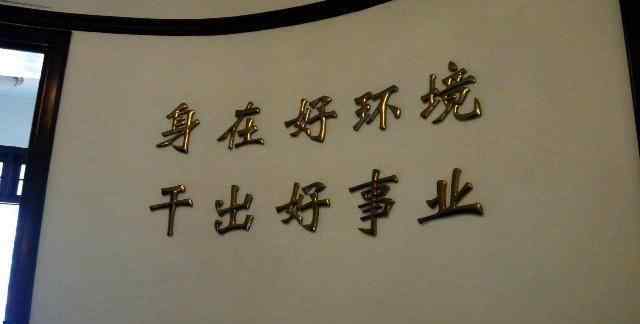 身在好环境
干出好事业